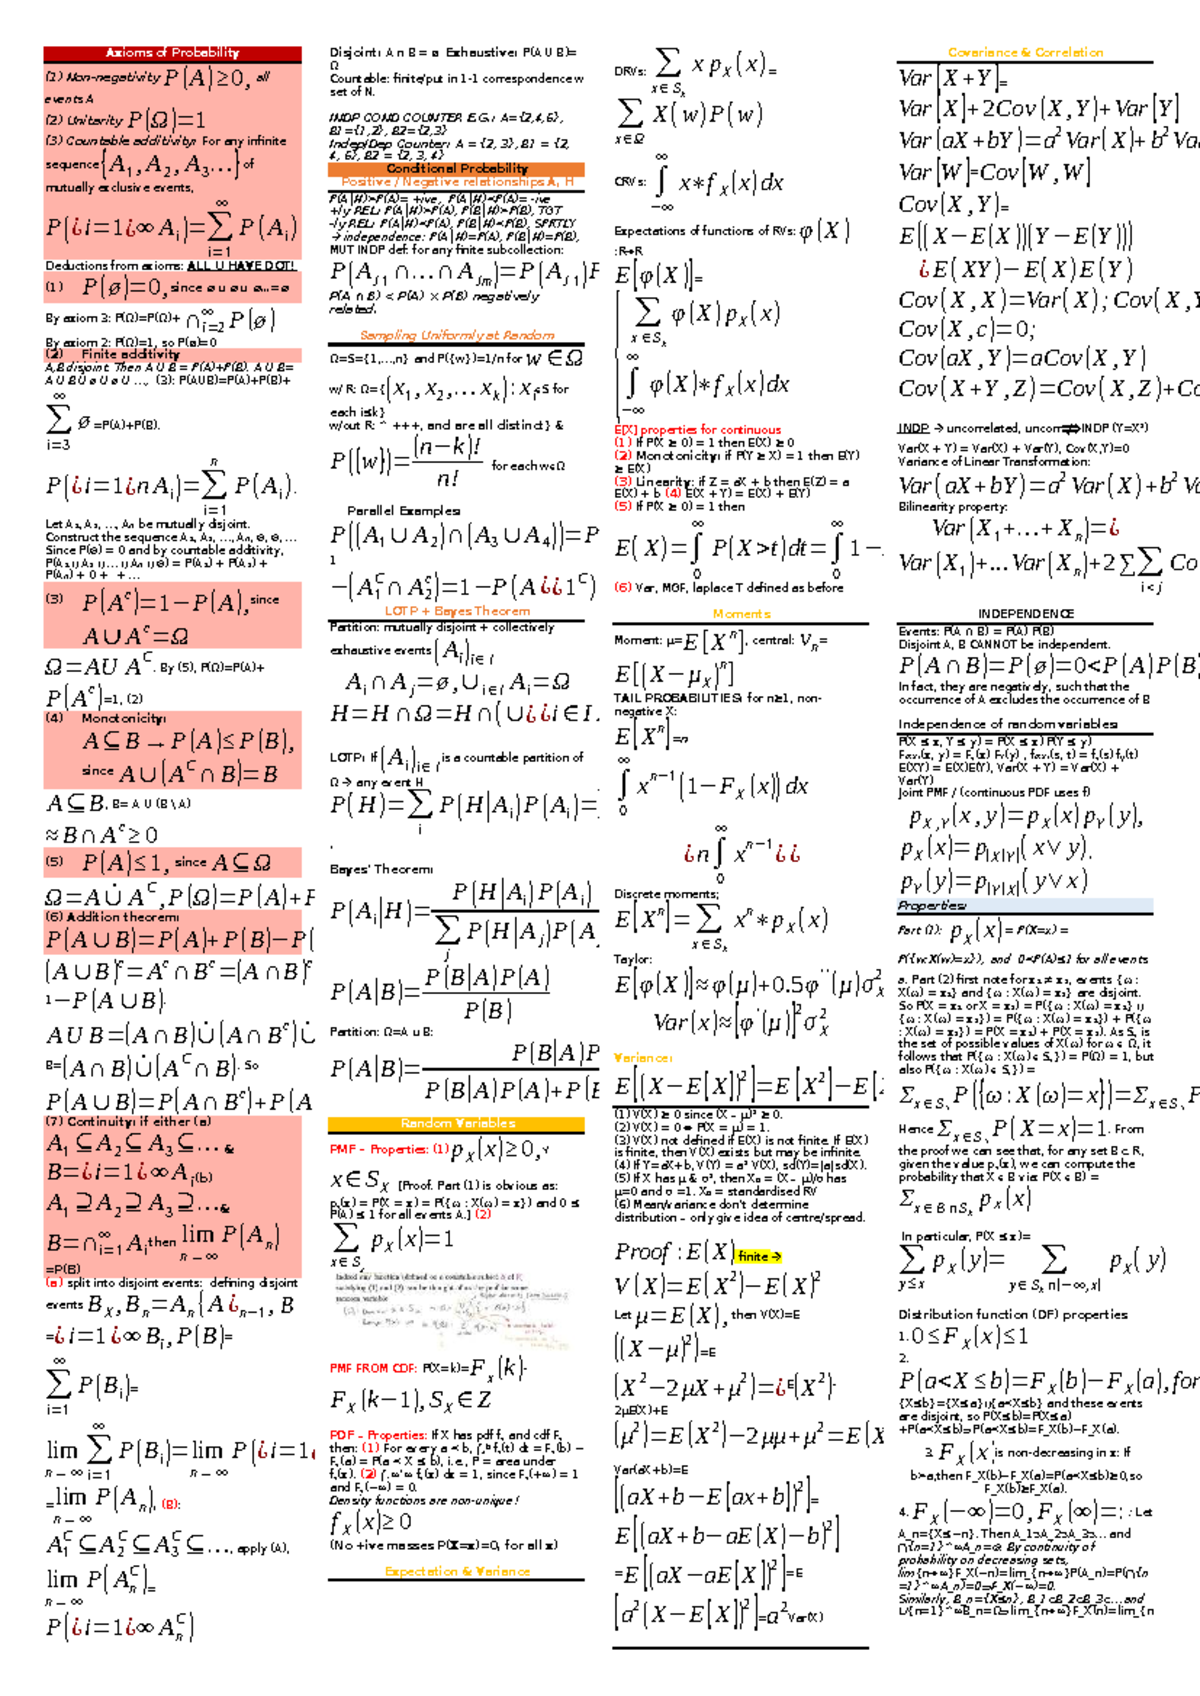 Axioms of Probability
(1) Non-negativity P(A)≥0, all
events A
(2) Unitarity P(Ω)=1
(3) Countable additivity: For any infinite
sequence{A₁, A₂, A₃…} of
mutually exclusive events,
P(¿i=1¿∞ Aᵢ)=∑ᵢ₌₁^∞ P(Aᵢ)
Deductions from axioms: ALL U HAVE DOT!
(1) P(ø)=0, since ø ∪ ø ∪ ø…=ø
By axiom 3: P(Ω)=P(Ω)+ ∩ᵢ₌₂^∞ P(ø)
By axiom 2: P(Ω)=1, so P(ø)=0
(2) Finite additivity
A,B disjoint. Then A U B = P(A)+P(B). A U B=
A U B U ø U ø U …, (3): P(AUB)=P(A)+P(B)+
∑ᵢ₌₃^∞ Ø =P(A)+P(B).
P(¿i=1¿n Aᵢ)=∑ᵢ₌₁ⁿ P(Aᵢ).
Let A₁, A₂, …, Aₙ be mutually disjoint.
Construct the sequence A₁, A₂, …, Aₙ, ∅, ∅, …
Since P(∅) = 0 and by countable additivity,
P(Aₙ) + 0 + + …
(3) P(Aᶜ)=1−P(A), since
A∪Aᶜ=Ω
Ω=AU Aᶜ. By (5), P(Ω)=P(A)+
P(Aᶜ)=1, (2)
(4) Monotonicity:
A⊆B→P(A)≤P(B),
since A∪(Aᶜ∩B)=B
A⊆B. B= A U (B \ A)
≈B∩Aᶜ≥0
(5) P(A)≤1, since A⊆Ω
Ω=A∪̇Aᶜ,P(Ω)=P(A)+P
(6) Addition theorem:
P(A∪B)=P(A)+P(B)−P(
(A∪B)ᶜ=Aᶜ∩Bᶜ=(A∩B)ᶜ
1−P(A∪B).
AUB=(A∩B)∪̇(A∩Bᶜ)∪̇
B=(A∩B)∪̇(Aᶜ∩B). So
P(A∪B)=P(A∩Bᶜ)+P(A
(7) Continuity: if either (a)
A₁⊆A₂⊆A₃⊆…&
B=¿i=1¿∞ Aᵢ(b)
A₁⊇A₂⊇A₃⊇…&
B=∩ᵢ₌₁^∞ Aᵢ then lim n→∞ P(Aₙ)
=P(B)
(a) split into disjoint events: defining disjoint
events B_X, Bₙ=Aₙ{A¿ₙ₋₁, B
=¿i=1¿∞ Bᵢ, P(B)=
∑ᵢ₌₁^∞ P(Bᵢ)=
lim n→∞ ∑ᵢ₌₁^∞ P(Bᵢ)=lim n→∞ P(¿i=1¿
=lim n→∞ P(Aₙ), (B):
A₁ᶜ⊆A₂ᶜ⊆A₃ᶜ⊆…, apply (A),
lim n→∞ P(Aₙᶜ)=
P(¿i=1¿∞ Aₙᶜ)
Disjoint: A ∩ B = ø Exhaustive: P(A U B)=
Ω
Countable: finite/put in 1-1 correspondence w
set of N.
INDP COND COUNTER E.G.: A={2,4,6},
B1={1,2}, B2={2,3}
Indep/Dep Counter: A = {2, 3}, B1 = {2,
4, 6}, B2 = {2, 3, 4}
Conditional Probability
Positive / Negative relationships A, H
P(A|H)>P(A)= +ive, P(A|H)<P(A)= -ive
+ly REL: P(A|H)>P(A), P(B|H)>P(B), TGT
-ly REL: P(A|H)<P(A), P(B|H)<P(B), SPRTLY
→ independence: P(A|H)=P(A), P(B|H)=P(B),
MUT INDP def: for any finite subcollection:
P(A_j1∩…∩A_jm)=P(A_j1)P
P(A ∩ B) < P(A) × P(B) negatively
related.
Sampling Uniformly at Random
Ω=S={1,…,n} and P({w})=1/n for w∈Ω
w/ R: Ω={(X₁, X₂,…X_k): Xᵢ∈S for
each i≤k}
w/out R: ^ +++, and are all distinct} &
P({w})=(n−k)!/n! for each w∈Ω
Parallel Examples:
P((A₁∪A₂)∩(A₃∪A₄))=P
1
−(A₁ᶜ∩A₂ᶜ)=1−P(A¿¿1ᶜ)
LOTP + Bayes Theorem
Partition: mutually disjoint + collectively
exhaustive events (Aᵢ)i∈I
Aᵢ∩Aⱼ=ø,∪i∈I Aᵢ=Ω
H=H∩Ω=H∩(∪¿¿i∈I.
LOTP: If (Aᵢ)i∈I is a countable partition of
Ω → any event H
P(H)=∑ᵢ P(H|Aᵢ)P(Aᵢ)=
.
Bayes' Theorem:
P(Aᵢ|H)=P(H|Aᵢ)P(Aᵢ)/∑ⱼ P(H|Aⱼ)P(A
P(A|B)=P(B|A)P(A)/P(B)
Partition: Ω=A ∪ B:
P(A|B)=P(B|A)P/P(B|A)P(A)+P(B
Random Variables
PMF – Properties: (1) pₓ(x)≥0,∀
x∈Sₓ [Proof. Part (1) is obvious as:
pₓ(x) = P(X = x) = P({ω : X(ω) = x}) and 0 ≤
P(A) ≤ 1 for all events A.] (2)
∑x∈Sₓ pₓ(x)=1
PMF FROM CDF: P(X=k)=Fₓ(k)-
Fₓ(k−1), Sₓ∈Z
PDF – Properties: If X has pdf fₓ and cdf Fₓ
then: (1) For every a < b, ∫ₐᵇ fₓ(t) dt = Fₓ(b) −
Fₓ(a) = P(a < X ≤ b), i.e., P = area under
fₓ(x). (2) ∫ fₓ(x) dx = 1, since Fₓ(+∞) = 1
and Fₓ(−∞) = 0.
Density functions are non-unique!
fₓ(x)≥0
(No +ive masses P(X=x)=0, for all x)
Expectation & Variance
DRVs: ∑x∈Sₓ x pₓ(x)=
∑x∈Ω X(w)P(w)
CRVs: ∫₋∞^∞ x∗fₓ(x)dx
Expectations of functions of RVs: φ(X)
:R→R
E[φ(X)]=
∑x∈Sₓ φ(X)pₓ(x)
∫₋∞^∞ φ(X)∗fₓ(x)dx
E[X] properties for continuous
(1) If P(X ≥ 0) = 1 then E(X) ≥ 0
(2) Monotonicity: if P(Y ≥ X) = 1 then E(Y)
≥ E(X)
(3) Linearity: if Z = aX + b then E(Z) = a
E(X) + b (4) E(X + Y) = E(X) + E(Y)
(5) If P(X ≥ 0) = 1 then
E(X)=∫₀^∞ P(X>t)dt=∫₀^∞ 1−.
(6) Var, MGF, laplace T defined as before
Moments
Moment: μ=E[Xⁿ], central: Vₙ=
E[(X−μₓ)ⁿ]
TAIL PROBABILITIES: for n≥1, non-
negative X:
E[Xⁿ]=n
∫₀^∞ xⁿ⁻¹(1−Fₓ(x))dx
¿n∫₀^∞ xⁿ⁻¹¿¿
Discrete moments:
E[Xⁿ]=∑x∈Sₓ xⁿ∗pₓ(x)
Taylor:
E[φ(X)]≈φ(μ)+0.5φ¨(μ)σ²ₓ
Var(x)≈[φ˙(μ)]²σ²ₓ
Variance:
E[(X−E[X])²]=E[X²]−E[X
(1) V(X) ≥ 0 since (X − μ)² ≥ 0.
(2) V(X) = 0 ⇔ P(X = μ) = 1.
(3) V(X) not defined if E(X) is not finite. If E(X)
is finite, then V(X) exists but may be infinite.
(4) If Y=aX+b, V(Y) = a² V(X), sd(Y)=|a|sd(X).
(5) If X has μ & σ², then X₀ = (X − μ)/σ has
μ=0 and σ =1. X₀ = standardised RV
(6) Mean/variance don't determine
distribution – only give idea of centre/spread.
Proof: E(X) finite →
V(X)=E(X²)−E(X)²
Let μ=E(X), then V(X)=E
((X−μ)²)=E
(X²−2μX+μ²)=¿E(X²)-
2μE(X)+E
(μ²)=E(X²)−2μμ+μ²=E(X
Var(aX+b)=E
[(aX+b−E[ax+b])²]=
E[(aX+b−aE(X)−b)²]
=E[(aX−aE[X])²]=E
[a²(X−E[X])²]=a²Var(X)
Covariance & Correlation
Var[X+Y]=
Var[X]+2Cov(X,Y)+Var[Y]
Var(aX+bY)=a²Var(X)+b²Va
Var[W]=Cov[W,W]
Cov(X,Y)=
E((X−E(X))(Y−E(Y)))
¿E(XY)−E(X)E(Y)
Cov(X,X)=Var(X); Cov(X,Y
Cov(X,c)=0;
Cov(aX,Y)=aCov(X,Y)
Cov(X+Y,Z)=Cov(X,Z)+Co
INDP → uncorrelated, uncorr⇏INDP (Y=X²)
Var(X + Y) = Var(X) + Var(Y), Cov(X,Y)=0
Variance of Linear Transformation:
Var(aX+bY)=a²Var(X)+b²V
Bilinearity property:
Var(X₁+…+Xₙ)=¿
Var(X₁)+…Var(Xₙ)+2∑∑i<j Co
INDEPENDENCE
Events: P(A ∩ B) = P(A) P(B)
Disjoint A, B CANNOT be independent.
P(A∩B)=P(ø)=0<P(A)P(B)
In fact, they are negatively, such that the
occurrence of A excludes the occurrence of B
Independence of random variables:
P(X ≤ x, Y ≤ y) = P(X ≤ x) P(Y ≤ y)
E(XY) = E(X)E(Y), Var(X + Y) = Var(X) +
Var(Y)
Joint PMF / (continuous PDF uses f)
p_X,Y(x,y)=pₓ(x)p_Y(y),
pₓ(x)=p|X|Y|(x∨y).
p_Y(y)=p|Y|X|(y∨x)
Properties:
Part (1): pₓ(x)= P(X=x) =
P({w:X(w)=x}), and 0<P(A)≤1 for all events
a. Part (2) first note for x₁ ≠ x₂, events {ω :
X(ω) = x₁} and {ω : X(ω) = x₂} are disjoint.
So P(X = x₁ or X = x₂) = P({ω : X(ω) = x₁} ∪
{ω : X(ω) = x₂}) = P({ω : X(ω) = x₁}) + P({ω
: X(ω) = x₂}) = P(X = x₁) + P(X = x₂). As Sₓ is
the set of possible values of X(ω) for ω ∈ Ω, it
follows that P({ω : X(ω) ∈ Sₓ}) = P(Ω) = 1, but
also P({ω : X(ω) ∈ Sₓ}) =
Σx∈Sₓ P({ω:X(ω)=x})=Σx∈Sₓ P
Hence Σx∈Sₓ P(X=x)=1. From
the proof we can see that, for any set B ⊂ R,
given the value pₓ(x), we can compute the
probability that X ∈ B via: P(X ∈ B) =
Σx∈B∩Sₓ pₓ(x)
In particular, P(X ≤ x)=
∑y≤x pₓ(y)=∑y∈Sₓ∩(−∞,x] pₓ(y)
Distribution function (DF) properties
1. 0≤Fₓ(x)≤1
2.
P(a<X≤b)=Fₓ(b)−Fₓ(a), for
{X≤b}={X≤a}∪{a<X≤b} and these events
are disjoint, so P(X≤b)=P(X≤a)
+P(a<X≤b)⇒P(a<X≤b)=F_X(b)−F_X(a).
3. Fₓ(x) is non-decreasing in x: If
b>a,then F_X(b)−F_X(a)=P(a<X≤b)≥0,so
F_X(b)≥F_X(a).
4. Fₓ(−∞)=0, Fₓ(∞)=: : Let
A_n={X≤−n}. Then A_1⊃A_2⊃A_3⊃… and
⋂{n=1}^∞A_n=∅. By continuity of
probability on decreasing sets,
lim{n→∞}F_X(−n)=lim_{n→∞}P(A_n)=P(⋂{n
=1}^∞A_n)=0⇒F_X(−∞)=0.
Similarly, B_n={X≤n}, B_1⊂B_2⊂B_3⊂…and
∪{n=1}^∞B_n=Ω⇒lim_{n→∞}F_X(n)=lim_{n